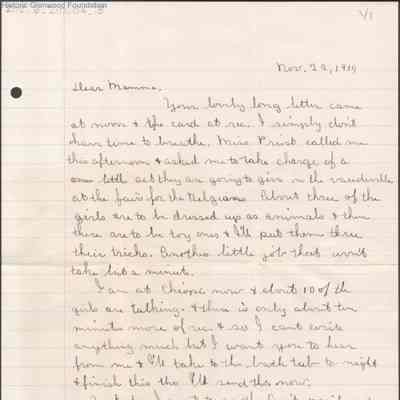 Historic Glenwood Foundation
V1
Nov. 22, 19
Dear Mamma,
Your lovely long letter came
at noon & the card at rec. I simply don't
have time to breathe. Miss Priest called me
this afternoon & asked me to take charge of a
little act they are going to give in the vaudeville
at the fair for the Belgians. About three of the
girls are to be dressed up as animals & then
there are to be toy ones & I'll put them thru
their tricks. Another little job that won't
take but a minute.
I am at now & about 10 of the
girls are talking. & there is only about ten
minutes more of rec. & so I can't write
anything much but I want you to hear
from me & I'll take to the bath tub to night
& finish this tho I'll send this now.